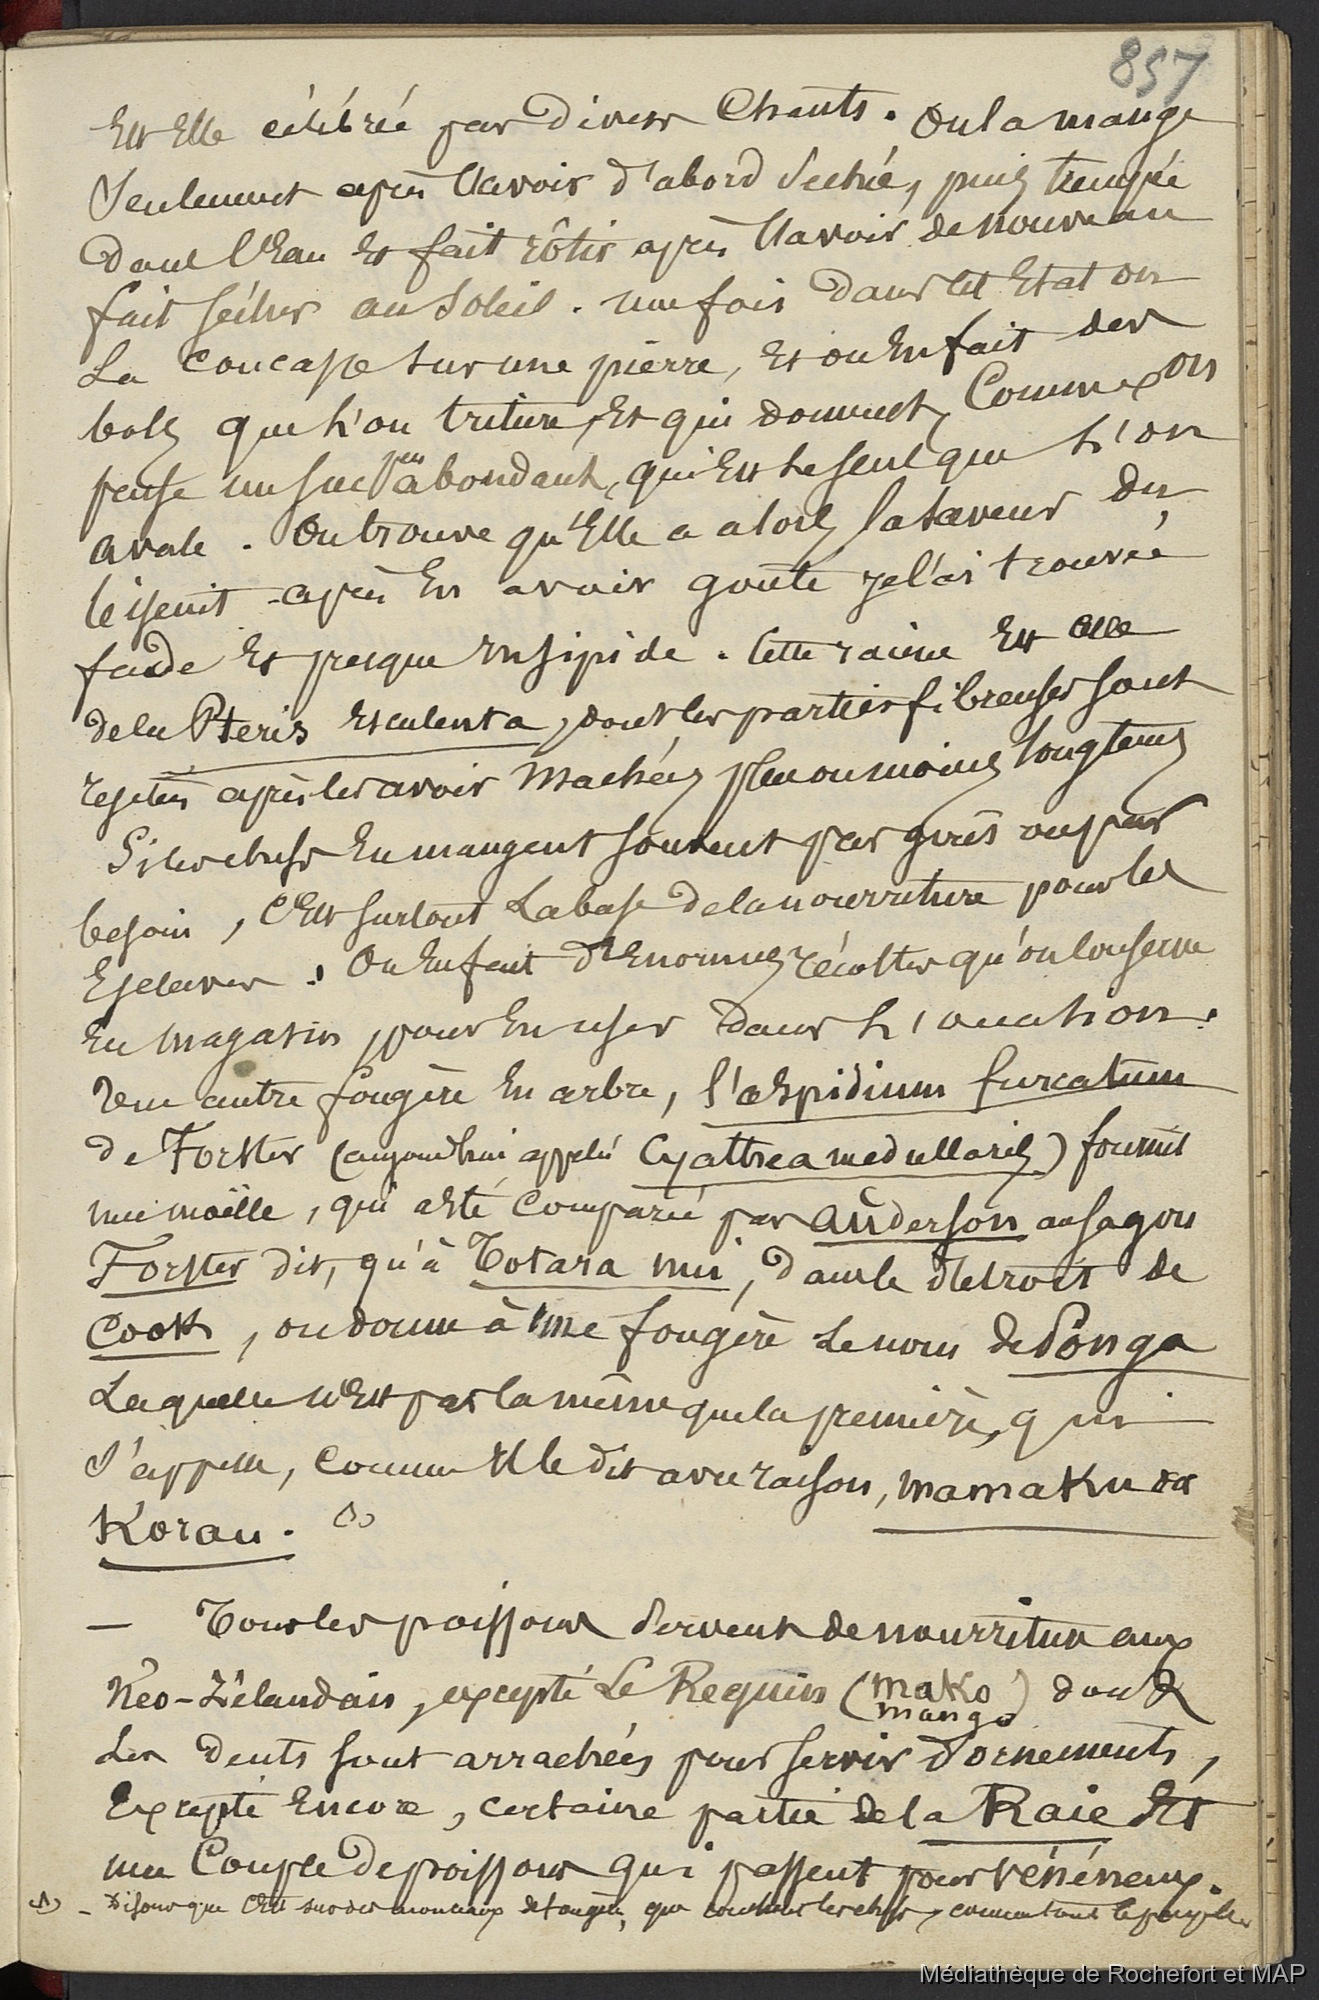 857
Est Elle célébrée par Divers Chants. On la mange
Seulement après l'avoir d'abord Séchée, puis trempée
Dans l'Eau Et fait rôtir après l'avoir de nouveau
fait sécher au Soleil. une fois Dans cet Etat on
La concasse sur une pierre, Et on En fait des
bols que l'on triture, Et qui donnent, Comme on
pense un suc peu abondant, qui Est le seul que l'on
avale. On trouve qu'Elle a alors la saveur du
biscuit. après En avoir goûté je l'ai trouvée
fade Et presque insipide. Cette racine Est celle
de la Pteris Esculenta, dont les parties fibreuses sont
rejetées après les avoir Machées plus ou moins longtems
Si les chefs En mangent souvent par goût ou par
besoin, c'Est surtout La base de la nourriture pour les
Esclaves. On En fait d'Enormes récoltes qu'on conserve
En magasin, pour En user Dans l'occasion.
Une autre fougère En arbre, l'aspidium furcatum
De Forster (aujourd'hui appelé Cyathea medullaris) fournit
une moëlle, qui a Eté Comparée par Anderson au sagou
Forster dit, qu'à Totara nui, Dans le détroit de
Cook, on donne à une fougère Le nom de Ponga
Laquelle n'Est pas la même que la première, qui
S'appelle, comme Il le dit avec raison, mamaku ou
Korau. (1)
— Tous les poissons Servent de nourriture aux
Néo-Zélandais, excepté Le Requin (mako mango) dont
Les Dents sont arrachées pour servir D'ornements,
Excepté Encore, certaine partie de la Raie Et
une Couple de poissons qui passent pour vénéneux.
(1) - Disons que C'Est sur des monceaux de fougère, que couchent les chefs, comme tout le peuple
Médiathèque de Rochefort et MAP